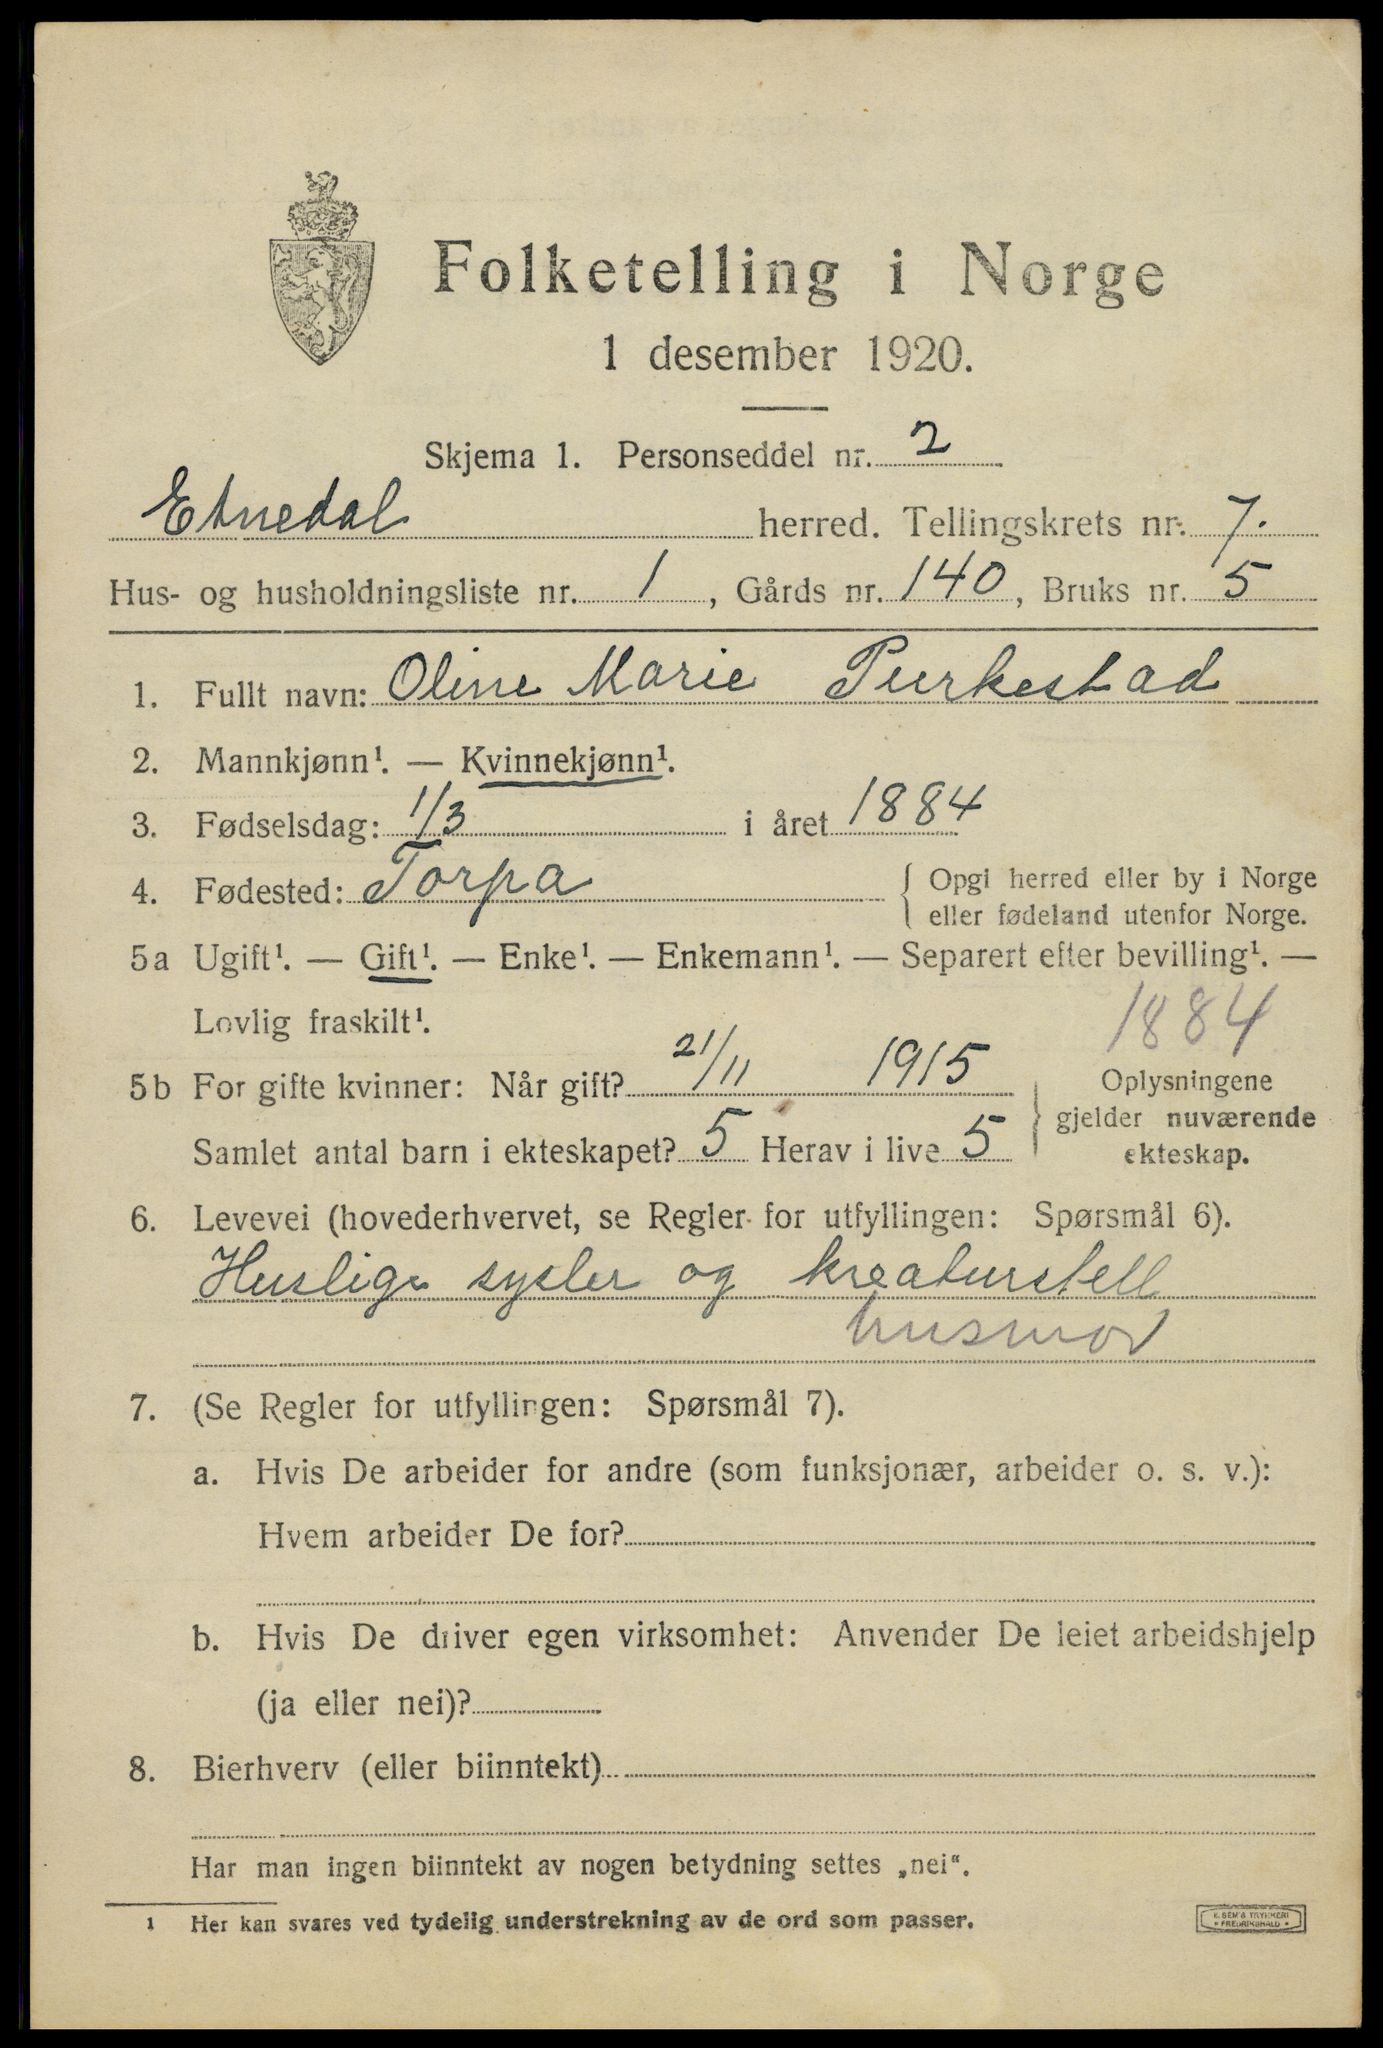 Folketelling i Norge
1 desember 1920.
Skjema 1. Personseddel nr. 2
Etnedal herred. Tellingskrets nr. 7.
Hus- og husholdningsliste nr. 1, Gårds nr. 140, Bruks nr. 5
1. Fullt navn: Oline Marie Purkestad
2. Mannkjønn¹. — Kvinnekjønn¹.
3. Fødselsdag: 1/3 i året 1884
4. Fødested: Torpa { Opgi herred eller by i Norge
eller fødeland utenfor Norge.
5a Ugift¹. — Gift¹. — Enke¹. — Enkemann¹. — Separert efter bevilling¹. —
Lovlig fraskilt¹.
1884
5b For gifte kvinner: Når gift? 21/11 1915
Samlet antal barn i ekteskapet? 5 Herav i live 5
} Oplysningene
gjelder nuværende
ekteskap.
6. Levevei (hovederhvervet, se Regler for utfyllingen: Spørsmål 6).
Huslige sysler og kreaturstell
husmor
7. (Se Regler for utfyllingen: Spørsmål 7).
a. Hvis De arbeider for andre (som funksjonær, arbeider o. s. v.):
Hvem arbeider De for?
b. Hvis De driver egen virksomhet: Anvender De leiet arbeidshjelp
(ja eller nei)?
8. Bierhverv (eller biinntekt)
Har man ingen biinntekt av nogen betydning settes „nei“.
1 Her kan svares ved tydelig understrekning av de ord som passer.
E. SEM'S TRYKKERI
* FREDRIKSHALD *